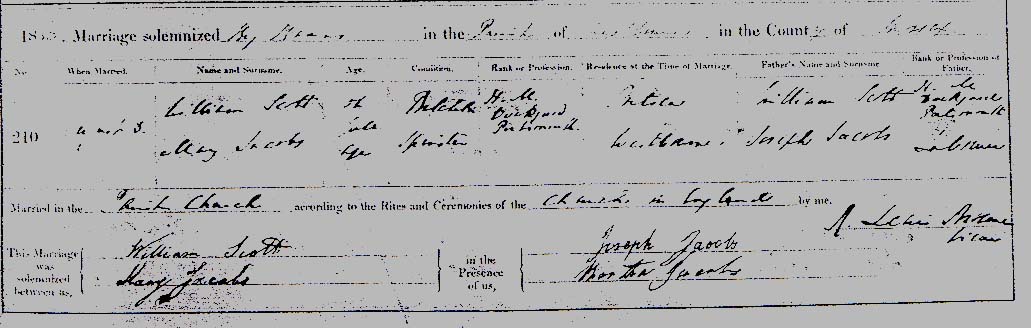 Marriage solemnized By Banns in the Parish of in the County of Essex
No. When Married. Name and Surname. Age. Condition. Rank or Profession. Residence at the Time of Marriage. Father's Name and Surname Rank or Profession of Father.
210
William Scott Of Bachelor H. M. Dockyard Portsmouth William Scott H. M. Dockyard Portsmouth
Mary Jacobs full Age Spinster Westham Joseph Jacobs Labourer
Married in the Parish Church according to the Rites and Ceremonies of the Church in England by me,
This Marriage was solemnized between us, William Scott Mary Jacobs in the Presence of us, Joseph Jacobs Martha Jacobs